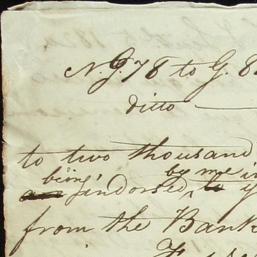 N. G. 78 to G. 8
ditto
to two thousand
being by me
indorsed, to
from the Bank